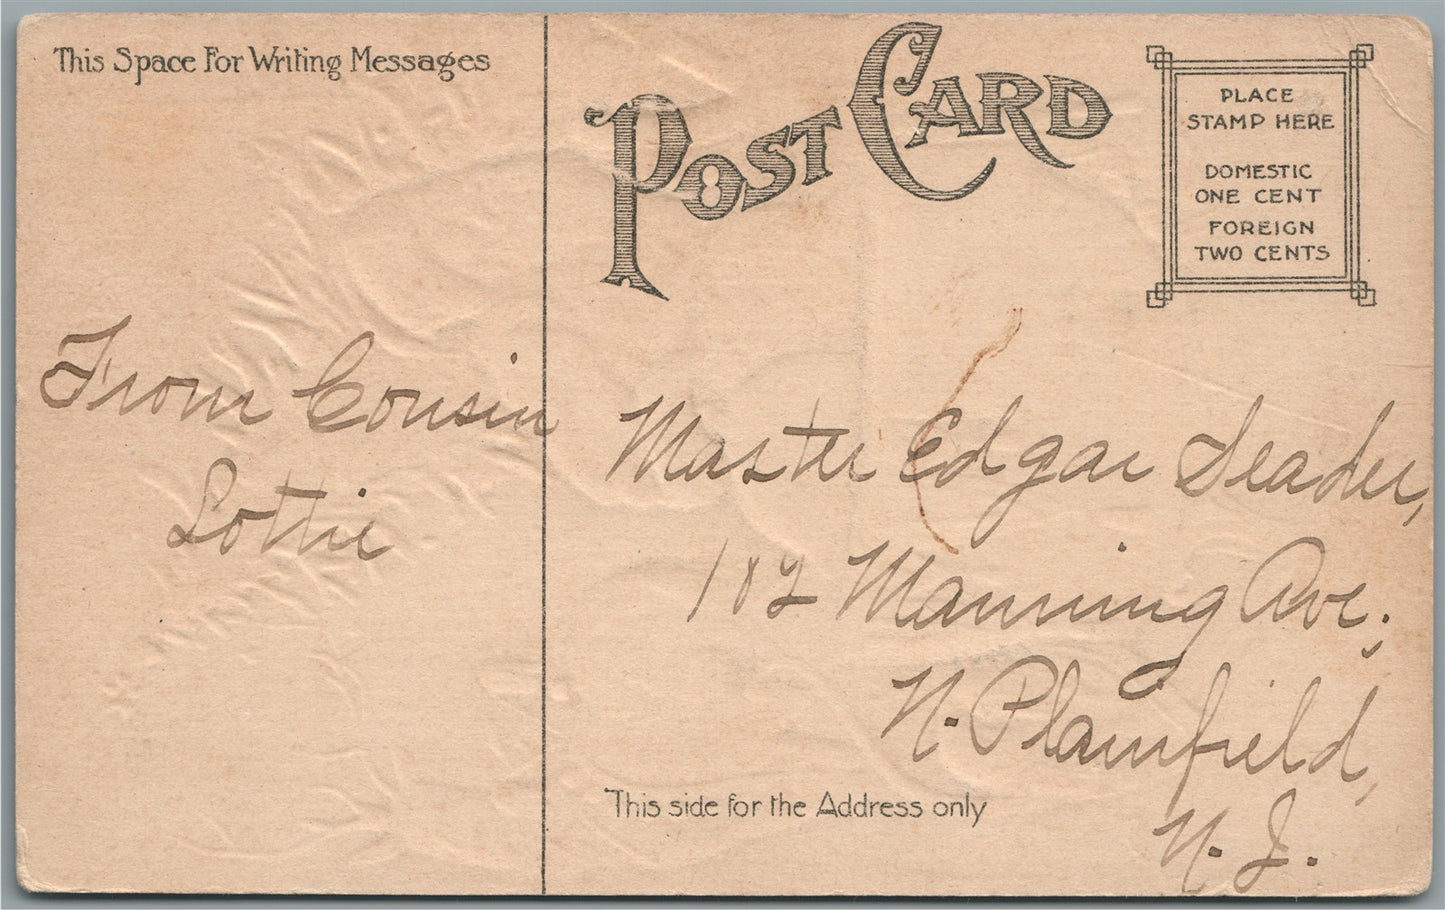 This Space For Writing Messages
POST CARD
PLACE
STAMP HERE
DOMESTIC
ONE CENT
FOREIGN
TWO CENTS
From Cousin
Lottie
Master Edgar Leader,
182 Manning Ave.,
N. Plainfield,
N. J.
This side for the Address only